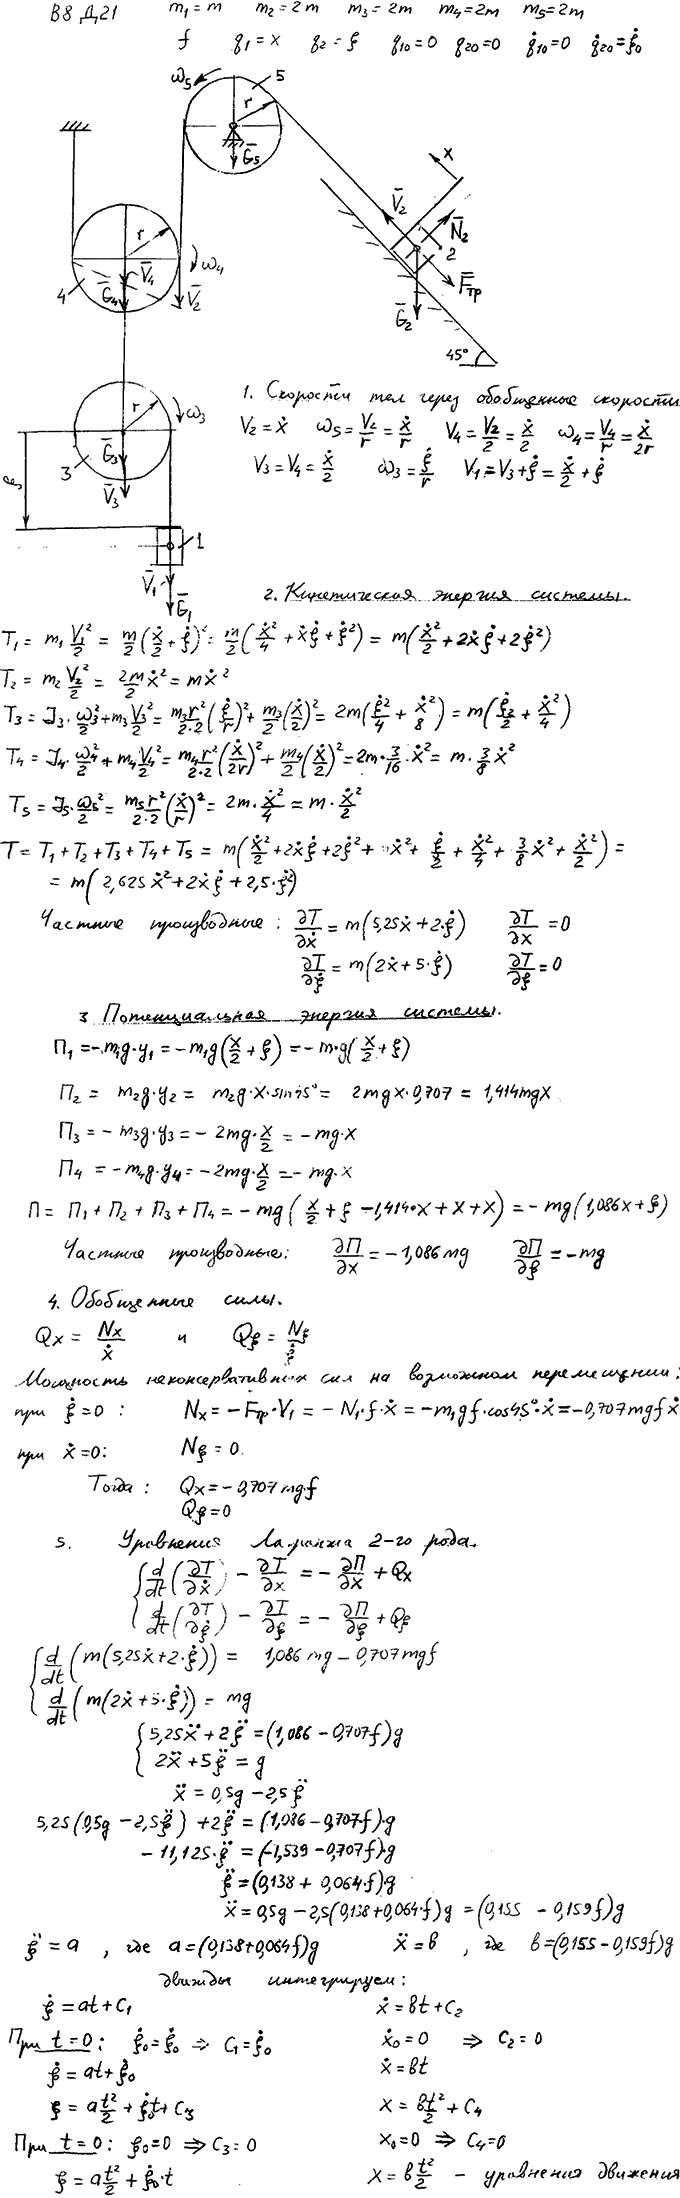 В8 Д21 m₁=m m₂=2m m₃=2m m₄=2m m₅=2m
f q₁=x q₂=ξ q₁₀=0 q₂₀=0 q̇₁₀=0 q̇₂₀=ξ̇₀
ω₅ 5
r
G̅₅
x
V̅₂ N̅₂
2
F̅тр
G̅₂
45°
r
ω₄
V̅₄
4 G̅₄ V̅₂
r ω₃
G̅₃
3
V̅₃
ξ
1
V̅₁
G̅₁
1. Скорости тел через обобщенные скорости
V₂=ẋ ω₅=V₂/r=ẋ/r V₄=V₂/2=ẋ/2 ω₄=V₄/r=ẋ/2r
V₃=V₄=ẋ/2 ω₃=ξ̇/r V₁=V₃+ξ̇=ẋ/2+ξ̇
2. Кинетическая энергия системы.
T₁ = m₁V₁²/2 = m/2(ẋ/2+ξ̇)² = m/2(ẋ²/4+ẋξ̇+ξ̇²) = m(ẋ²/2+2ẋξ̇+2ξ̇²)
T₂ = m₂V₂²/2 = 2m/2ẋ² = mẋ²
T₃ = J₃·ω₃²/2+m₃V₃²/2 = m₃r²/2·2(ξ̇/r)²+m₃/2(ẋ/2)² = 2m(ξ̇²/4+ẋ²/8) = m(ξ̇²/2+ẋ²/4)
T₄ = J₄·ω₄²/2+m₄V₄²/2 = m₄r²/2·2(ẋ/2r)²+m₄/2(ẋ/2)² = 2m·3/16·ẋ² = m·3/8ẋ²
T₅ = J₅·ω₅²/2 = m₅r²/2·2(ẋ/r)² = 2m·ẋ²/4 = m·ẋ²/2
T = T₁+T₂+T₃+T₄+T₅ = m(ẋ²/2+2ẋξ̇+2ξ̇²+ẋ²+ξ̇/2+ẋ²/4+3/8ẋ²+ẋ²/2) =
= m(2,625ẋ²+2ẋξ̇+2,5·ξ̇²)
Частные производные: ∂T/∂ẋ = m(5,25ẋ+2·ξ̇) ∂T/∂x = 0
∂T/∂ξ̇ = m(2ẋ+5·ξ̇) ∂T/∂ξ = 0
3 Потенциальная энергия системы.
П₁ = -m₁g·y₁ = -m₁g(x/2+ξ) = -m·g(x/2+ξ)
П₂ = m₂g·y₂ = m₂g·x·sin45° = 2mgx·0,707 = 1,414mgx
П₃ = -m₃g·y₃ = -2mg·x/2 = -mg·x
П₄ = -m₄g·y₄ = -2mg·x/2 = -mg·x
П = П₁+П₂+П₃+П₄ = -mg(x/2+ξ-1,414·x+x+x) = -mg(1,086x+ξ)
Частные производные: ∂П/∂x = -1,086mg ∂П/∂ξ = -mg
4. Обобщенные силы.
Qx = Nx/ẋ и Qξ = Nξ/ξ̇
Мощность неконсервативных сил на возможном перемещении:
при ξ̇=0: Nx = -Fтр·V₁ = -N₁·f·ẋ = -m₁gf·cos45°·ẋ = -0,707mgfẋ
при ẋ=0: Nξ = 0.
Тогда: Qx = -0,707mgf
Qξ = 0
5. Уравнения Лагранжа 2-го рода.
d/dt(∂T/∂ẋ) - ∂T/∂x = -∂П/∂x + Qx
d/dt(∂T/∂ξ̇) - ∂T/∂ξ = -∂П/∂ξ + Qξ
d/dt(m(5,25ẋ+2·ξ̇)) = 1,086mg-0,707mgf
d/dt(m(2ẋ+5·ξ̇)) = mg
5,25ẍ+2ξ̈ = (1,086-0,707f)g
2ẍ+5ξ̈ = g
ẍ = 0,5g-2,5ξ̈
5,25(0,5g-2,5ξ̈)+2ξ̈ = (1,086-0,707·f)·g
-11,125·ξ̈ = (-1,539-0,707f)·g
ξ̈ = (0,138+0,064·f)g
ẍ = 0,5g-2,5(0,138+0,064·f)g = (0,155-0,159f)g
ξ̈ = a, где a=(0,138+0,064f)g ẍ = в, где в=(0,155-0,159f)g
дважды интегрируем:
ξ̇ = at+C₁ ẋ = вt+C₂
При t=0: ξ̇₀=ξ̇₀ ⇒ C₁=ξ̇₀ ẋ₀=0 ⇒ C₂=0
ξ̇ = at+ξ̇₀ ẋ = вt
ξ = at²/2+ξ̇₀t+C₃ x = вt²/2+C₄
При t=0: ξ₀=0 ⇒ C₃=0 x₀=0 ⇒ C₄=0
ξ = at²/2+ξ̇₀·t x = вt²/2 - уравнения движения